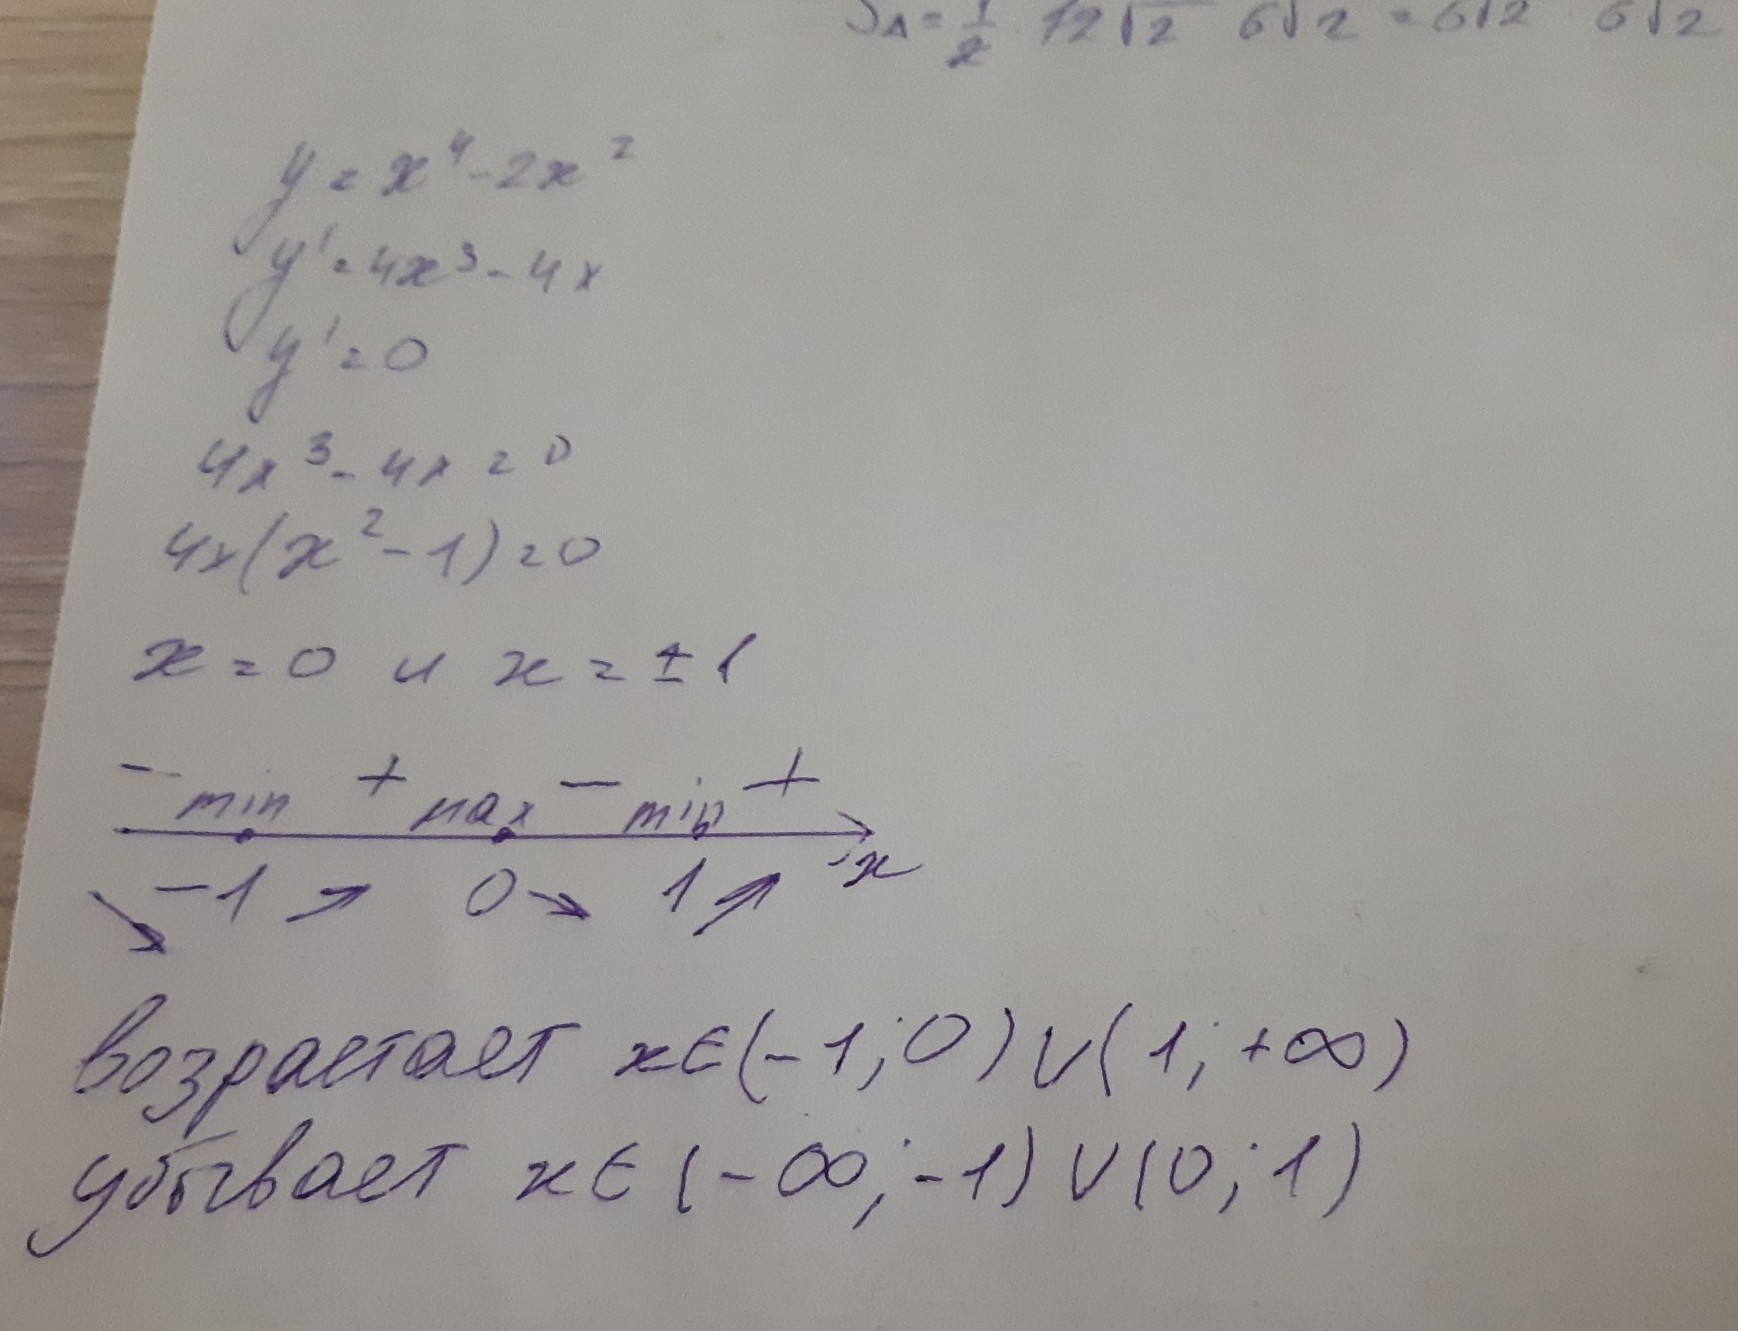 S△ = 1/2 12√2 6√2 = 6√2 6√2
y = x⁴ - 2x²
y' = 4x³ - 4x
y' = 0
4x³ - 4x = 0
4x(x² - 1) = 0
x = 0 и x = ± 1
- min + max - min +
-1 0 1 x
возрастает x∈(-1; 0) ∪ (1; +∞)
убывает x∈(-∞; -1) ∪ (0; 1)